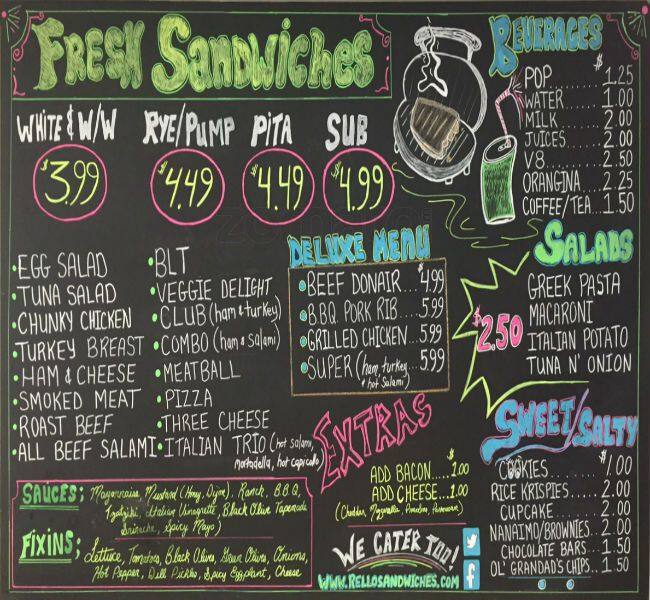 FRESH SANDWICHES
WHITE & W/W
$3.99
RYE/PUMP
$4.49
PITA
$4.49
SUB
$4.99
• EGG SALAD
• TUNA SALAD
• CHUNKY CHICKEN
• TURKEY BREAST
• HAM & CHEESE
• SMOKED MEAT
• ROAST BEEF
• ALL BEEF SALAMI
• BLT
• VEGGIE DELIGHT
• CLUB (ham & turkey)
• COMBO (ham & salami)
• MEATBALL
• PIZZA
• THREE CHEESE
• ITALIAN TRIO (hot salami,
mortadella, hot capicollo)
SAUCES; Mayonnaise, Mustard (Honey, Dijon), Ranch, B.B.Q,
Tzatziki, Italian Vinagrette, Black Olive Tapenade
Sriracha, Spicy Mayo)
FIXINS; Lettuce, Tomatoes, Black Olives, Green Olives, Onions,
Hot Pepper, Dill Pickles, Spicy Eggplant, Cheese
DELUXE MENU
BEEF DONAIR...$4.99
B.B.Q. PORK RIB...5.99
GRILLED CHICKEN...5.99
SUPER (ham, turkey...5.99
& hot salami)
EXTRAS
ADD BACON.....$1.00
ADD CHEESE...1.00
(Cheddar, Mozzarella,
WE CATER TOO!
WWW.RELLOSANDWICHES.COM
BEVERAGES
$
POP.........1.25
WATER.......1.00
MILK........2.00
JUICES......2.00
V8..........2.50
ORANGINA....2.25
COFFEE/TEA...1.50
SALADS
$2.50
GREEK PASTA
MACARONI
ITALIAN POTATO
TUNA N' ONION
SWEET/SALTY
COOKIES.......$1.00
RICE KRISPIES....2.00
CUPCAKE.....2.00
NANAIMO/BROWNIES..2.00
CHOCOLATE BARS...1.50
OL' GRANDAD'S CHIPS..1.50